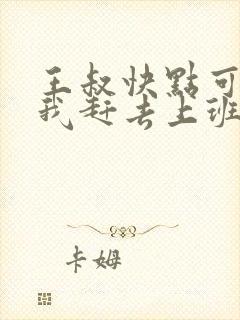 王叔快點可
我赶去上班
卡姆